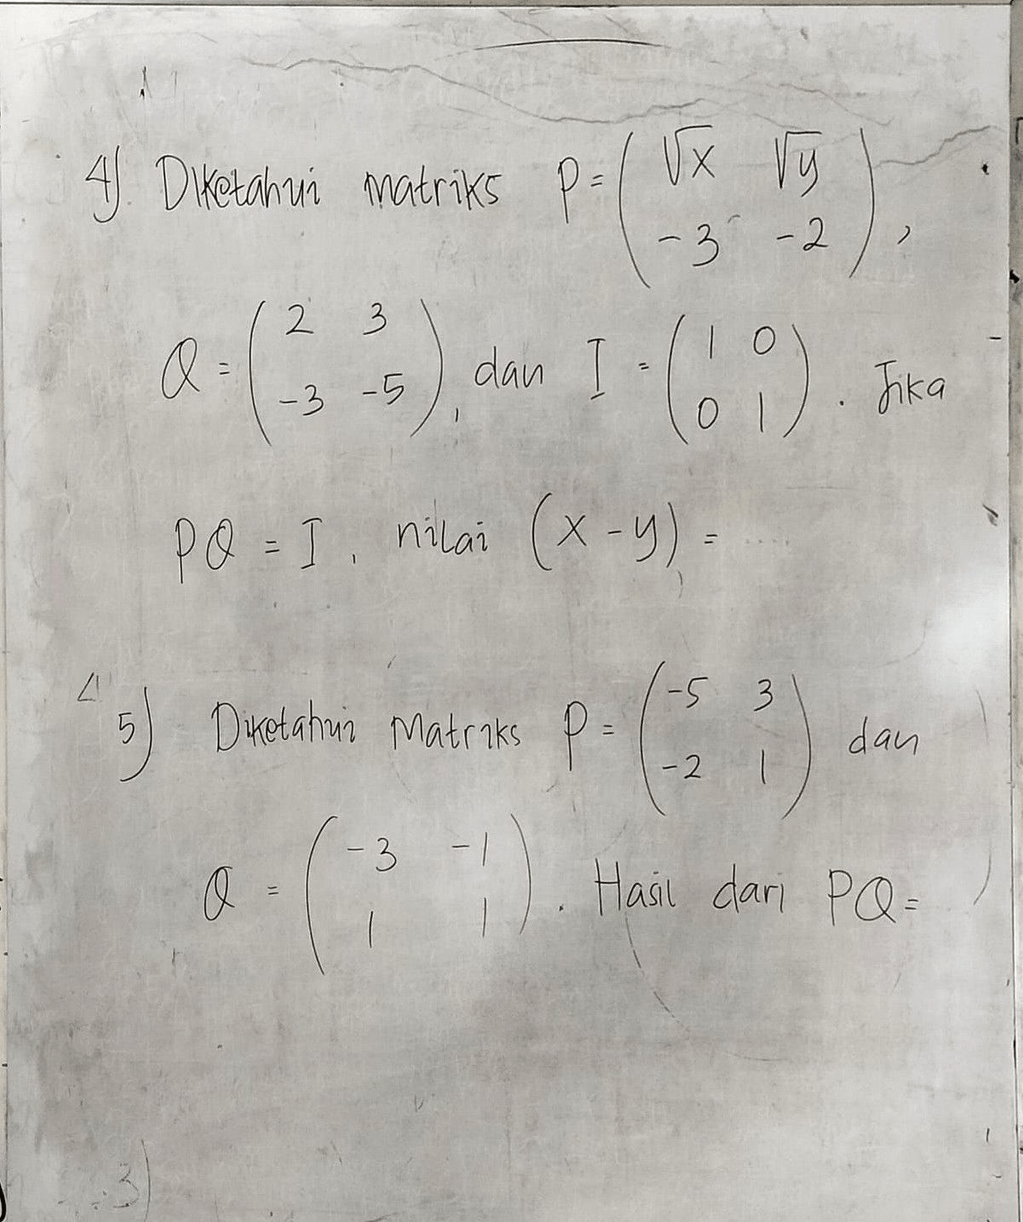 4). Diketahui matriks P = ( √x √y
-3 -2 ) ,
Q = ( 2 3
-3 -5 ), dan I = ( 1 0
0 1 ) . Jika
PQ = I , nilai (x - y) = .....
5) Diketahui Matriks P = ( -5 3
-2 1 ) dan
Q = ( -3 -1
1 1 ) . Hasil dari PQ =
3)